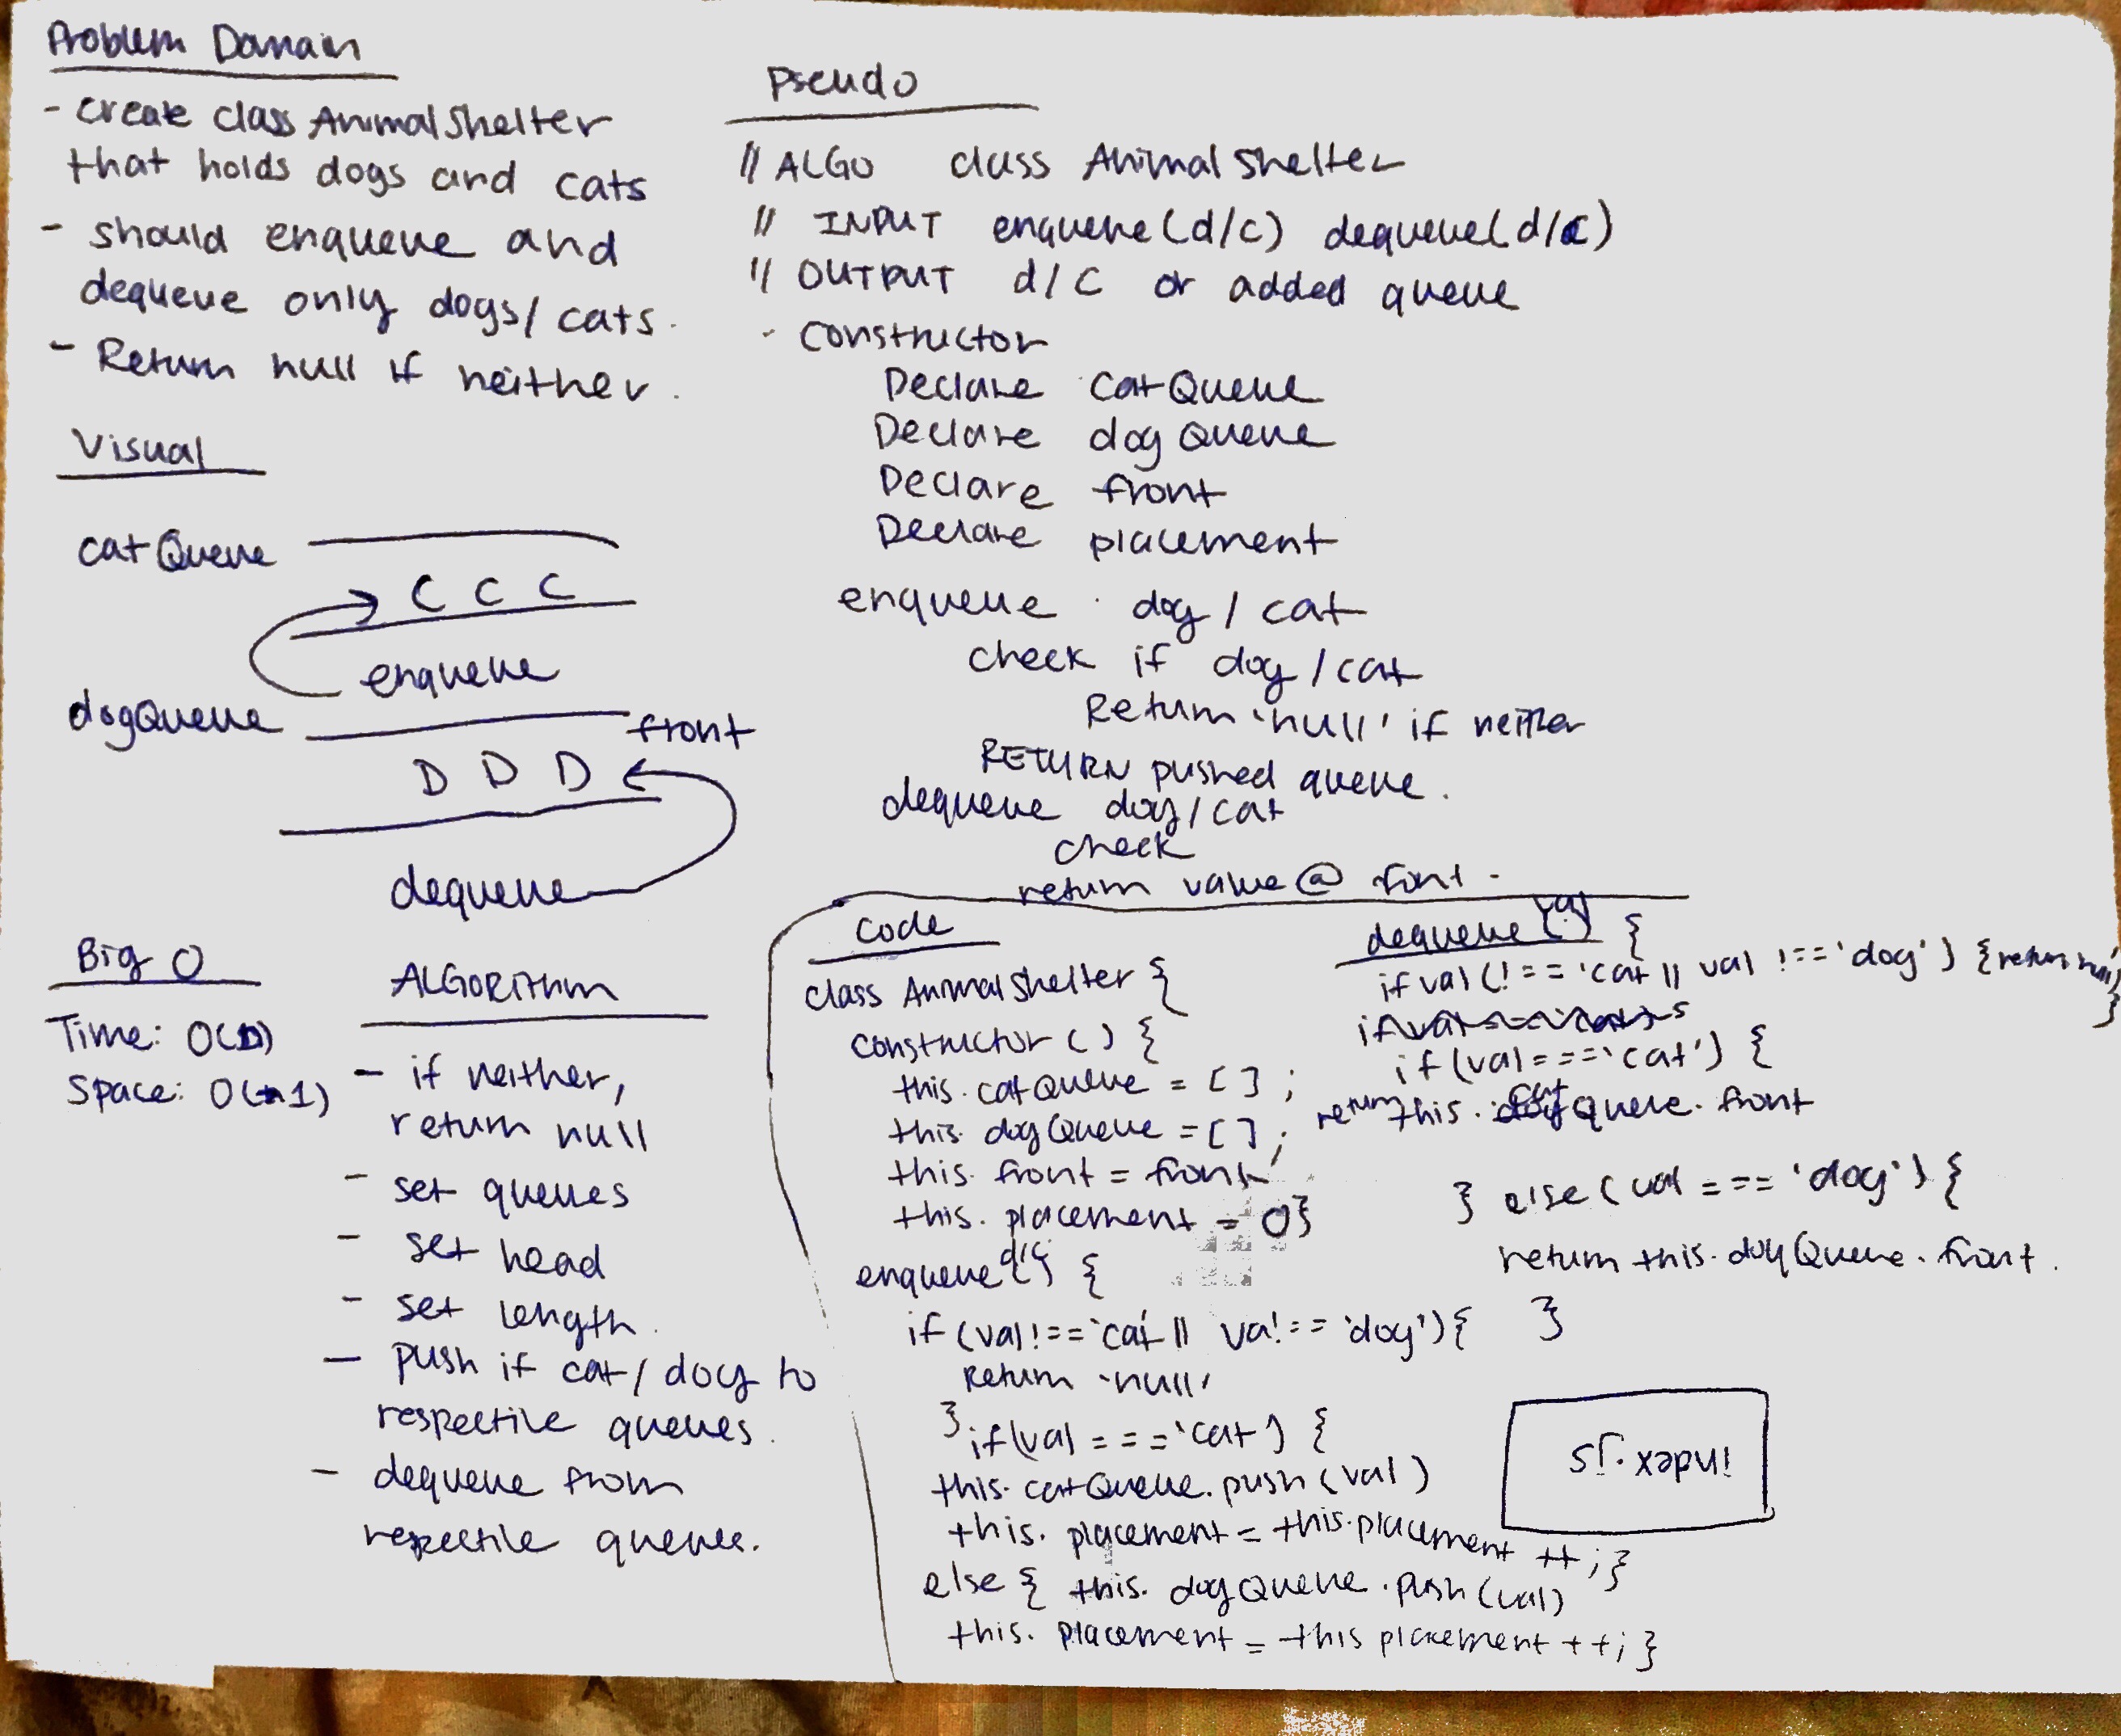 Problem Domain
- create class AnimalShelter
that holds dogs and cats
- should enqueue and
dequeue only dogs/cats.
- Return null if neither.
Visual
catQueue
C C C
enqueue
dogQueue
front
D D D
dequeue
Big O
Time: O(n)
Space: O(1)
ALGORITHM
- if neither,
return null
- set queues
- set head
- set length.
- push if cat/dog to
respective queues.
- dequeue from
repectile queues.
Pseudo
// ALGO class AnimalShelter
// INPUT enqueue(d/c) dequeue(d/c)
// OUTPUT d/c or added queue
- Constructor
Declare catQueue
Declare dogQueue
Declare front
Declare placement
enqueue dog/cat
check if dog/cat
Return 'null' if neither
RETURN pushed queue.
dequeue dog/cat
check
return value @ font.
Code
class AnimalShelter {
constructor() {
this.catQueue = [];
this.dogQueue = [];
this.front = front;
this.placement = 0}
enqueue {
if (val !== 'cat' || va!== 'dog'){
Return 'null'
} if(val === 'cat') {
this.catQueue.push(val)
this.placement = this.placement ++;}
else { this.dogQueue.push(val)
this.placement = this placement ++;}
dequeue {
if val (!== 'cat || val !== 'dog') {return null
}
if(val === 'cat') {
return this.catqueue.front
} else (val === 'dog') {
return this.dogQueue.front.
}
index.js